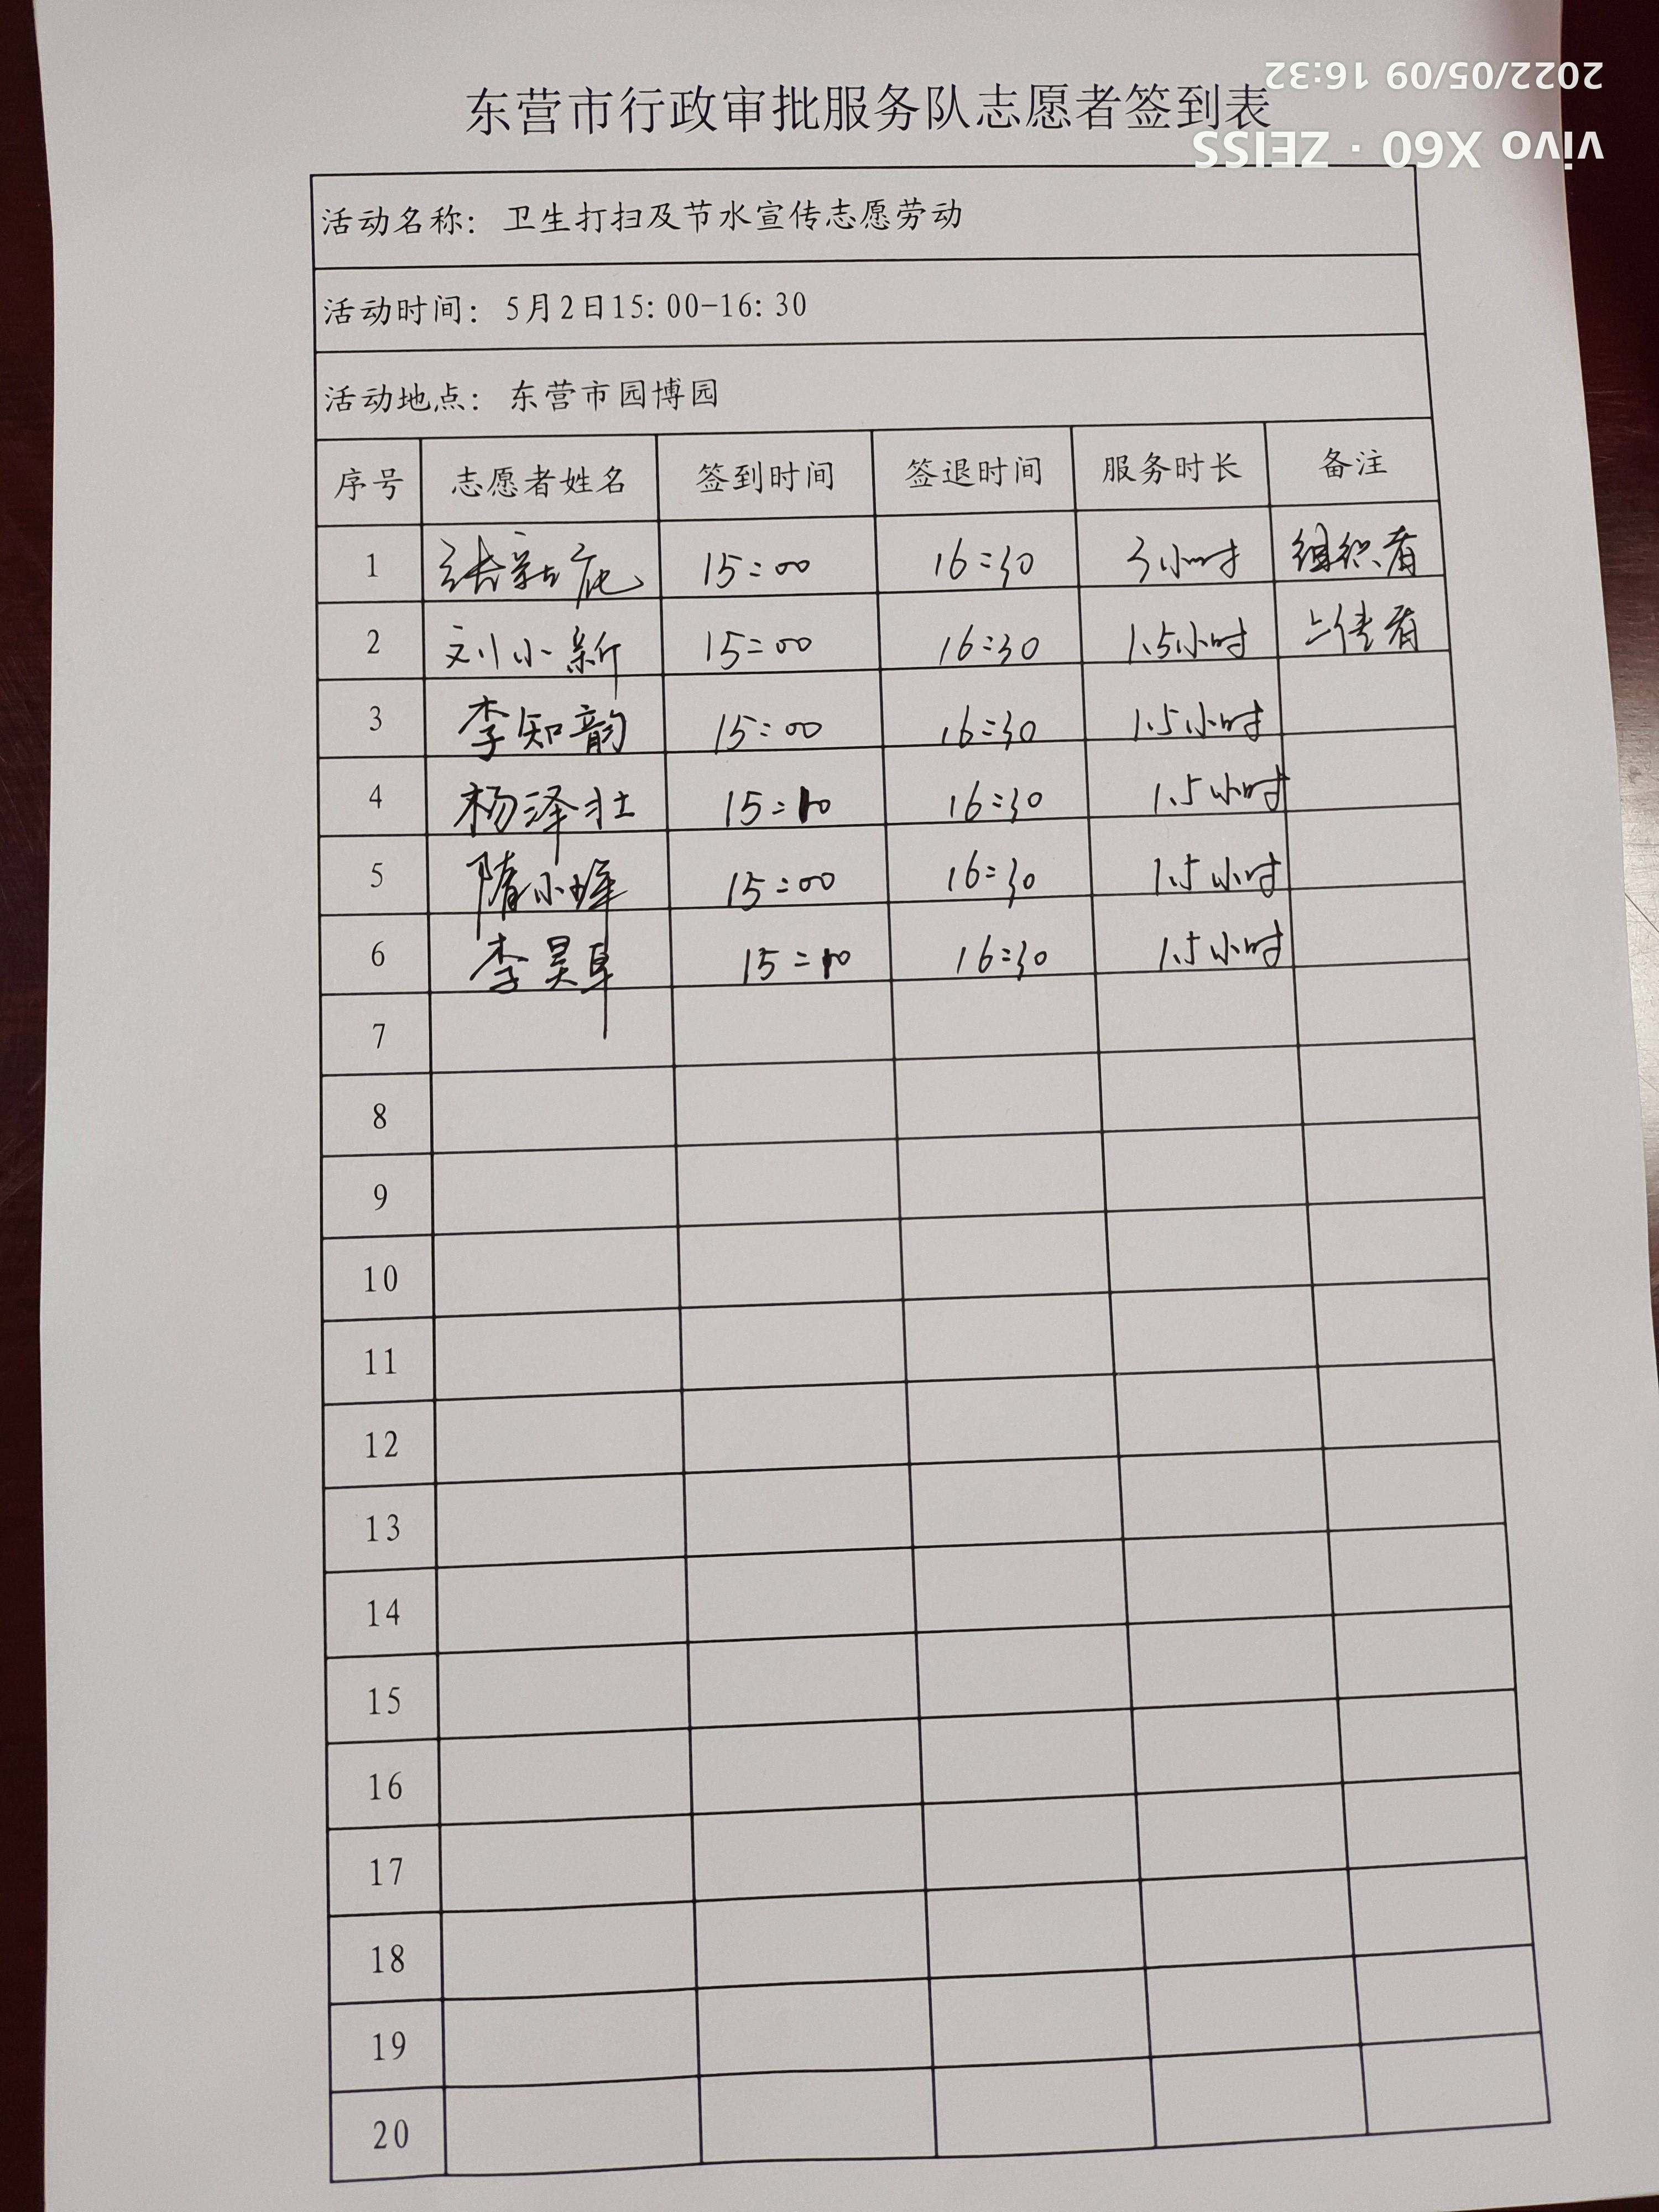 2022/05/09 16:32
vivo X60 · ZEISS
东营市行政审批服务队志愿者签到表
活动名称：卫生打扫及节水宣传志愿劳动
活动时间：5月2日15：00-16：30
活动地点：东营市园博园
序号 志愿者姓名 签到时间 签退时间 服务时长 备注
1 张 15:00 16:30 3小时 组织者
2 刘小新 15:00 16:30 1.5小时 上传者
3 李知韵 15:00 16:30 1.5小时
4 杨泽壮 15:10 16:30 1.5小时
5 隋小峰 15:00 16:30 1.5小时
6 李昊卓 15:10 16:30 1.5小时
7
8
9
10
11
12
13
14
15
16
17
18
19
20